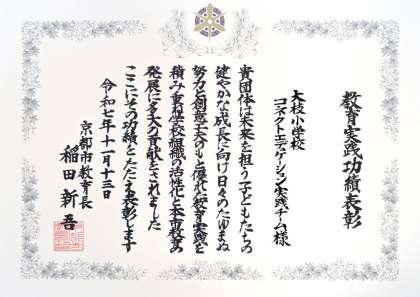 教育実践功績表彰
大枝小学校
コネクトエデュケーション実践チーム様
貴団体は未来を担う子どもたちの
健やかな成長に向け日々のたゆまぬ
努力と創意工夫のもと優れた教育実践を
積み重ね学校組織の活性化と本市教育の
発展に多大の貢献をされました
ここにその功績をたたえ表彰します
令和七年十一月十三日
京都市教育長
稲田新吾